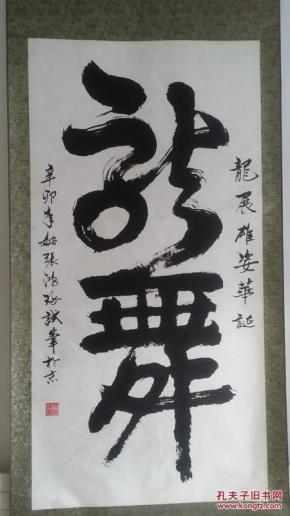 龍展雄姿華誕
龍舞
辛卯年始張鴻海試筆於京
孔夫子旧书网
www.kongfz.com